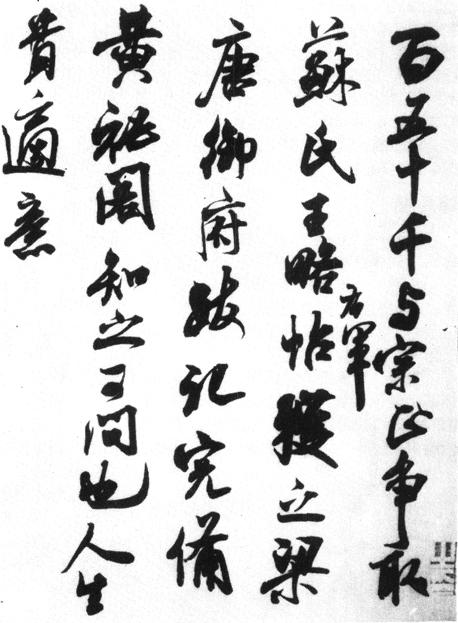 百五十千与宗正争取
蘇氏王略帖右軍獲之梁
唐御府跋記完備
黄秘閣知之可問也人生
貴適意